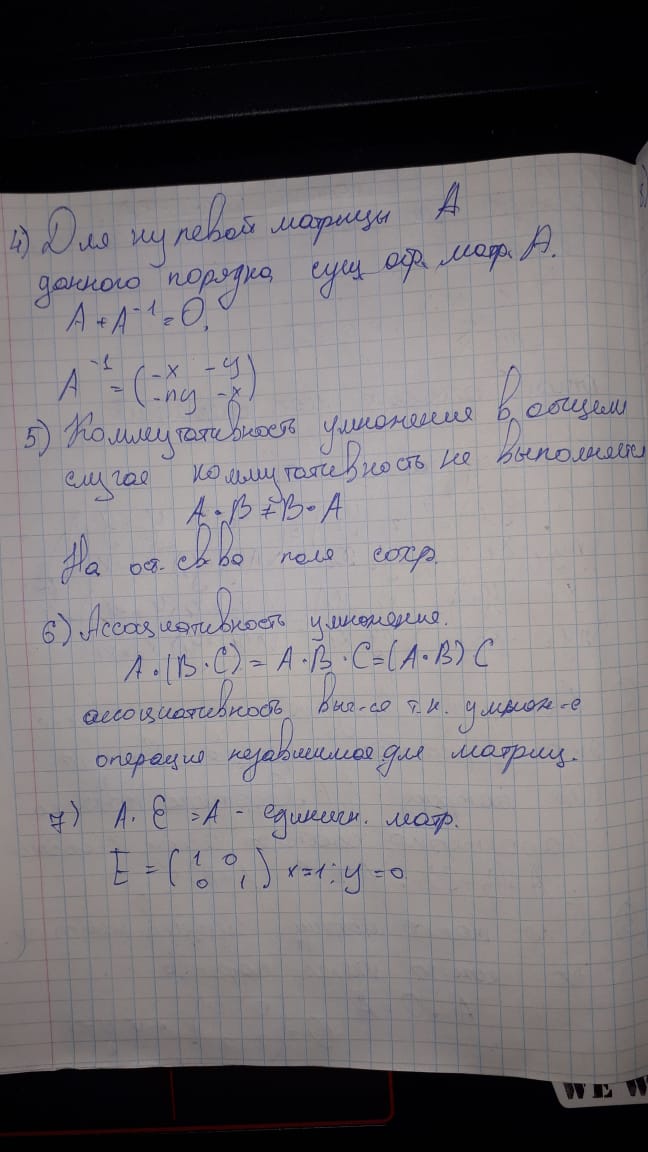 4) Для нулевой матрицы A
данного порядка сущ обр. матр. A.
A + A⁻¹ = O.
A⁻¹ = (-x -y
-ny -x)
5) Коммутативность умножения в общем
случае коммутативность не выполняется
A · B ≠ B · A
На ост. св-ва поля сохр.
6) Ассоциативность умножения.
A · (B · C) = A · B · C = (A · B) C
ассоциативность вып-се т.к. умнож-е
операция независимая для матриц.
7) A · E = A - единичн. матр.
E = (1 0
0 1) x = 1; y = 0
WE W